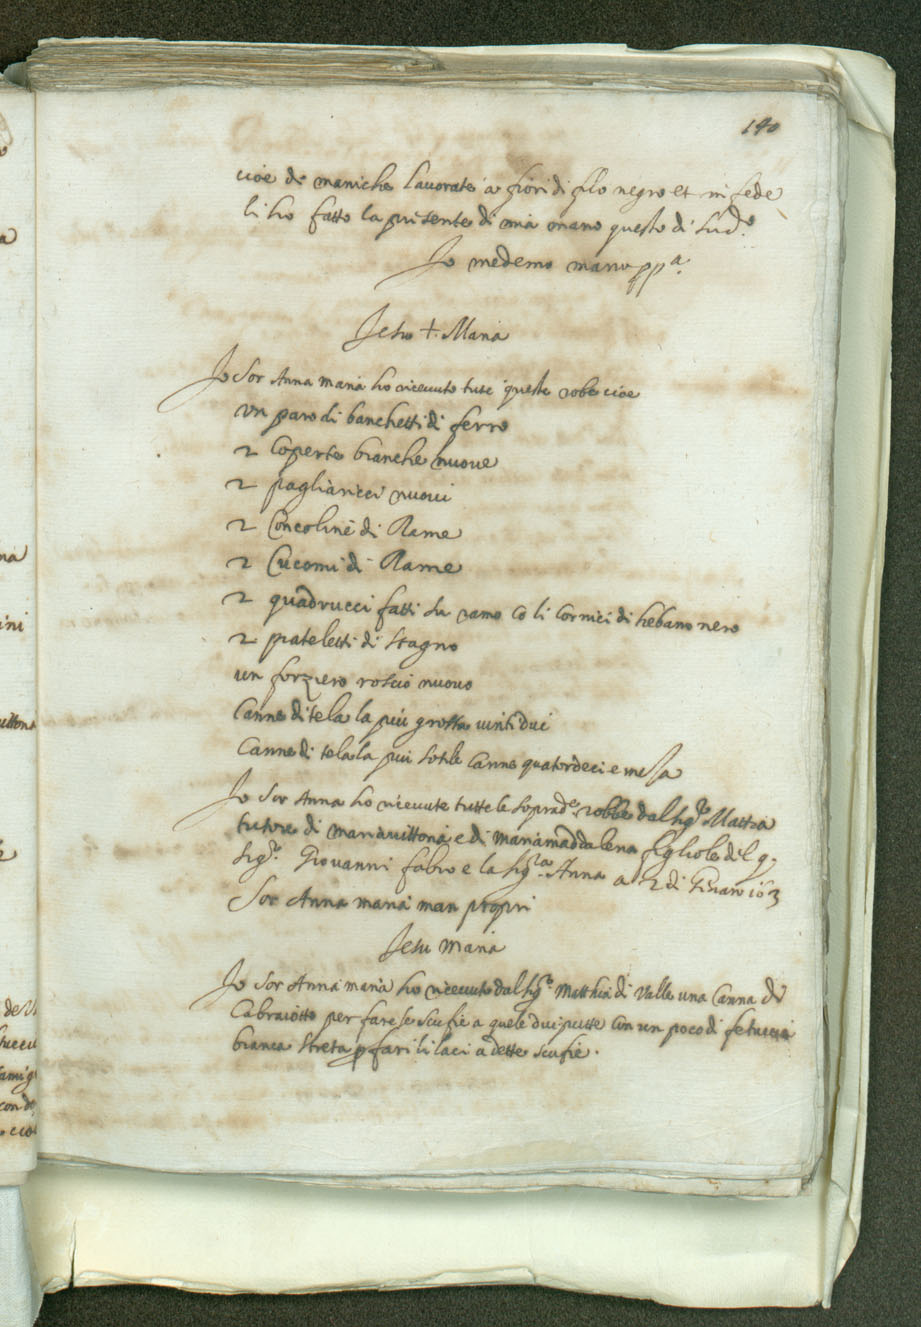 140
cioe di maniche lavorate a fiori di filo negro et in fede
li ho fatto la presente di mia mano questo di sud.o
Io medemo mano pp.a
Jesu +. Maria
Io Sor Anna maria ho ricevuto tute queste robe cioe
un paro di banchetti di ferro
2 coperte bianche nuove
2 pagliaricci nuovi
2 Concoline di Rame
2 Cucomi di Rame
2 quadrucci fatti su ramo co li cornici di hebano nero
2 piateletti di stagno
un forziero roscio nuovo
Canne di tela la piu grossa vinti dui
Canne di tela la piu sotile canne quatordeci e mesa
Io Sor Anna ho ricevute tutte le soprad.e robbe dal sig.re Mattia
tutore di maria vittoria e di maria maddalena figliole del q.
sig.r Giovanni fabro e la sig.ra Anna a 2 di
Sor Anna maria man propri
Jesu Maria
Io Sor Anna maria ho ricevuto dal sig.r Matthia di Valle una Canna di
Cabraiotto per fare le scufie a quele dui putte con un poco di fetuccia
bianca streta p fari li laci a dette scufie.